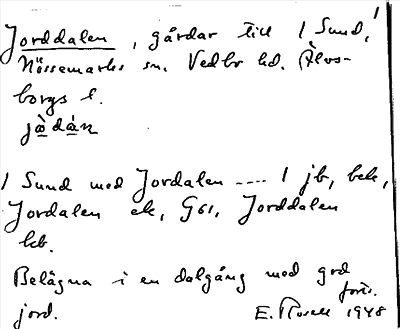 Jorddalen, gårdar till 1 Sund,
Nössemarks sn. Vedbo hd. Älvs-
borgs l.
jàdán
1 Sund med Jordalen .... 1 jb, bek,
Jordalen ek, G61, Jorddalen
kb.
Belägna i en dalgång med god
jord.
E. Rosell 1948